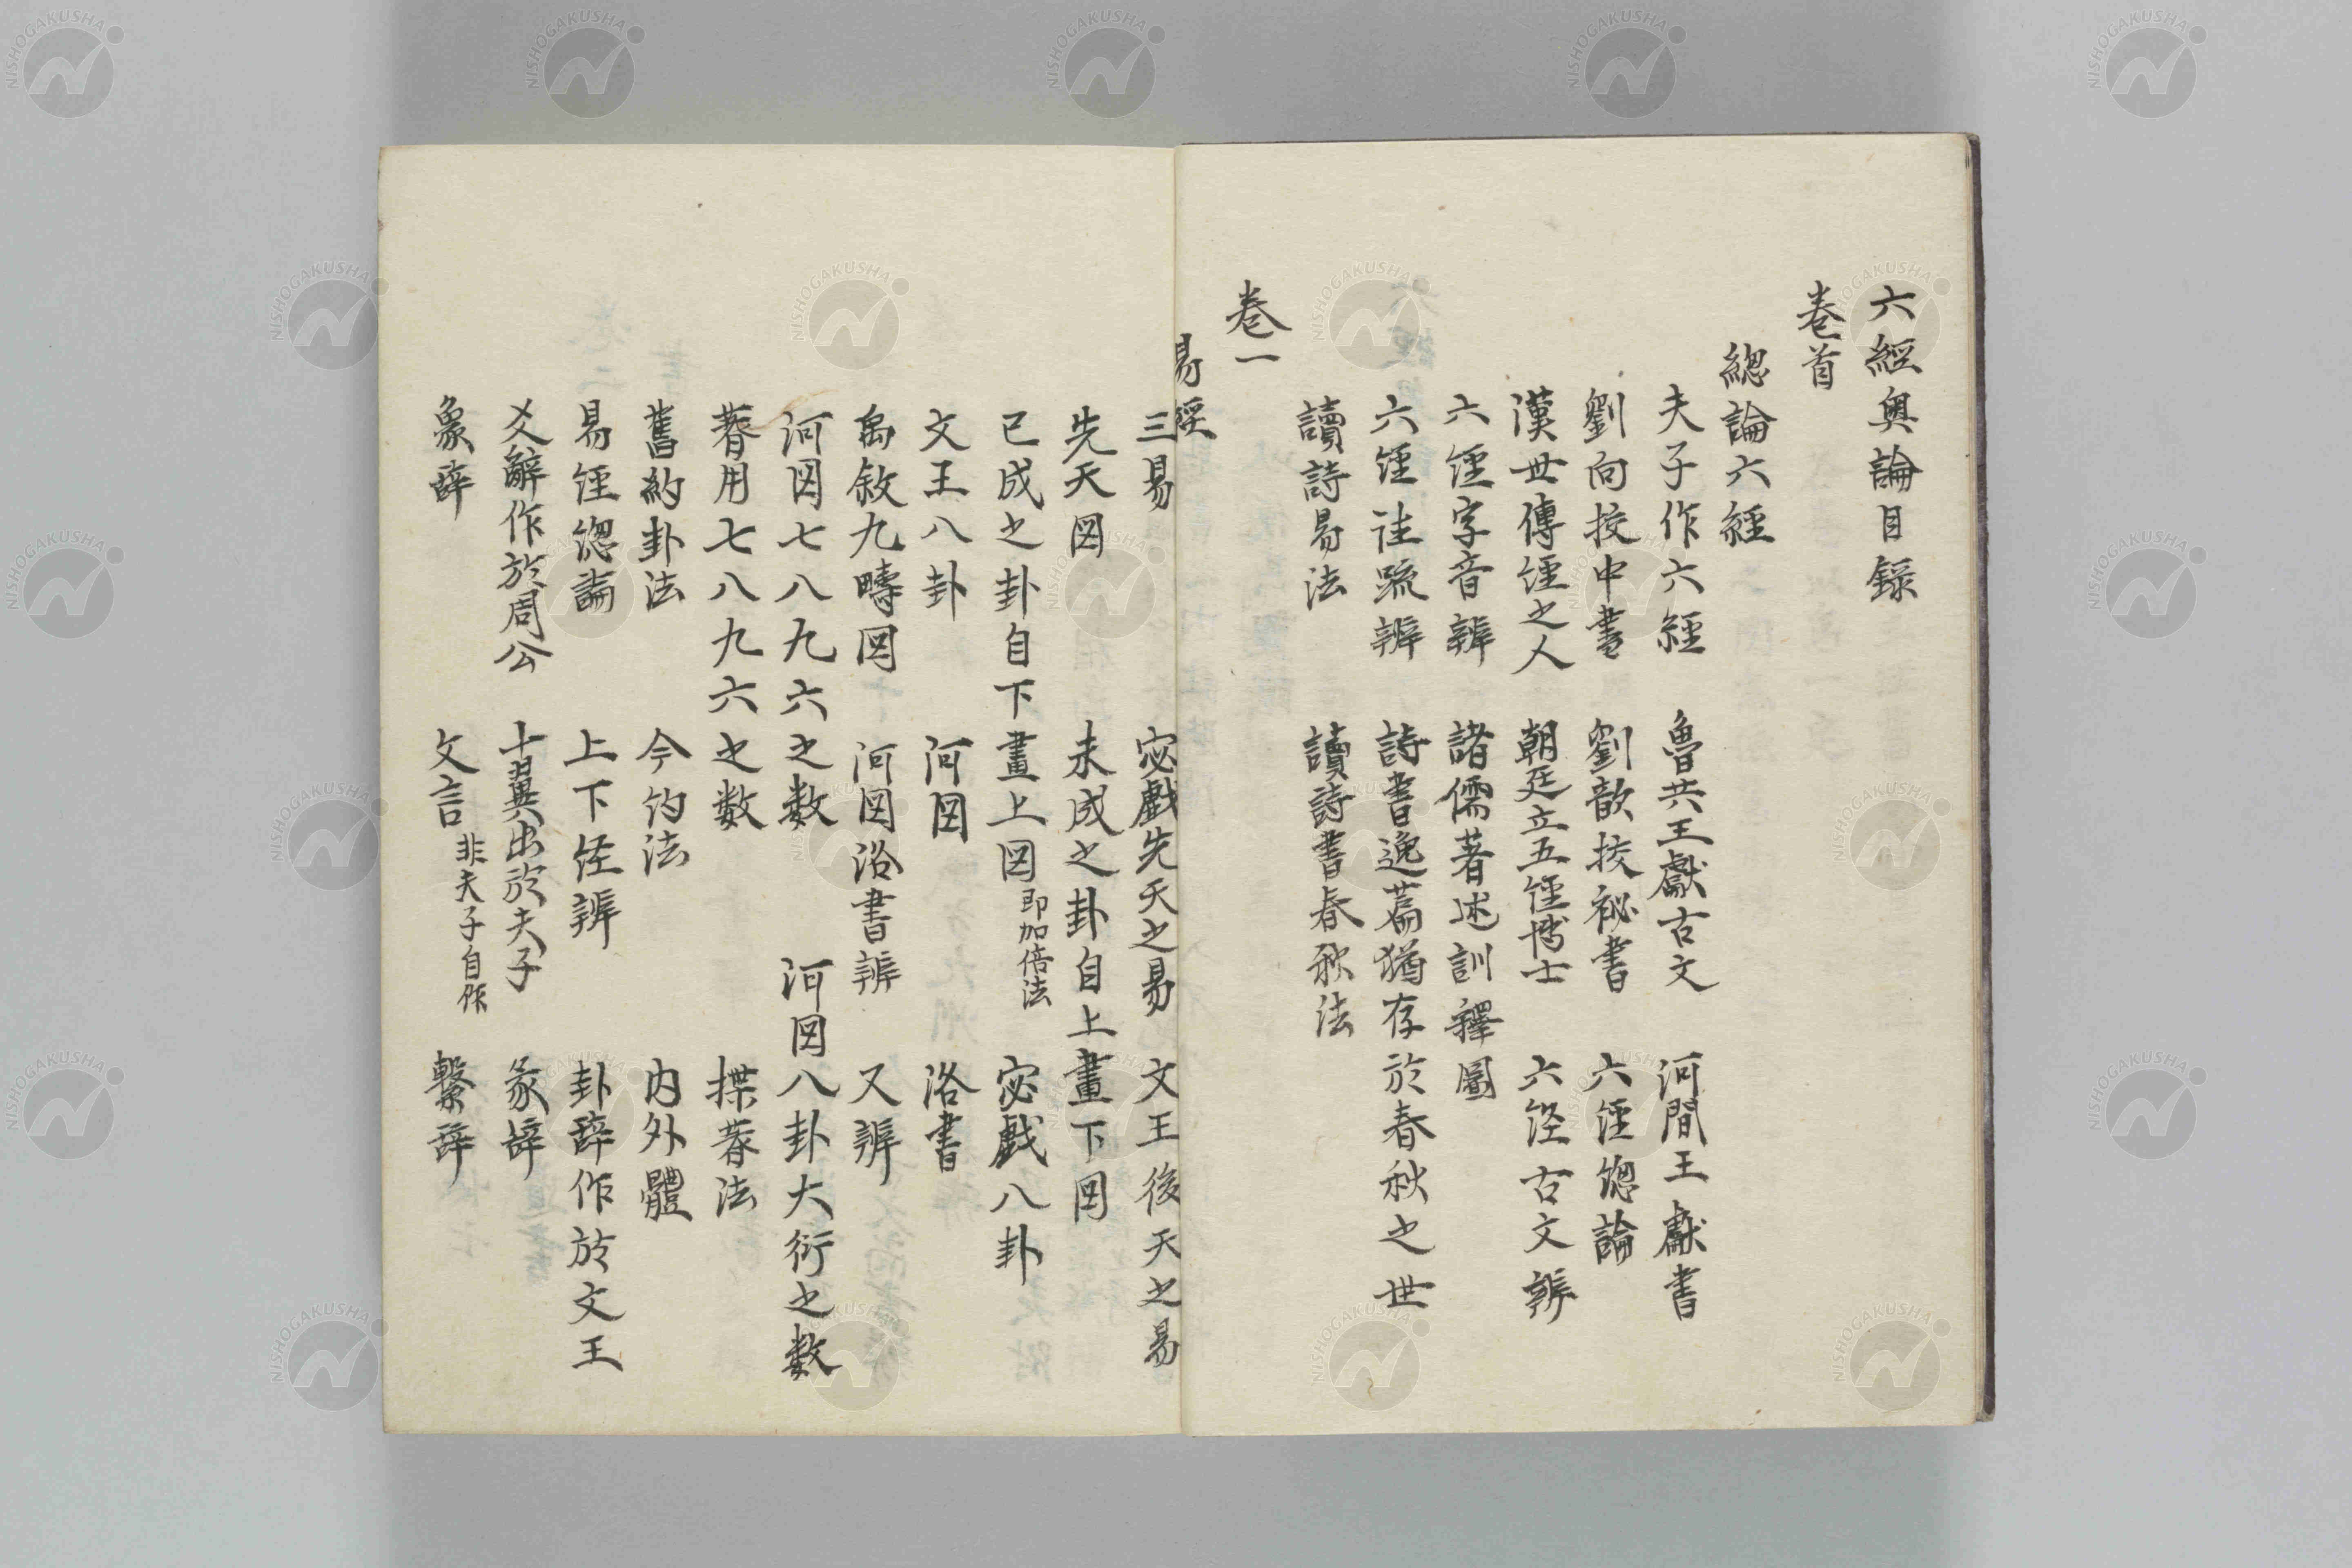 六經奥論目録
卷首
緫論六經
夫子作六經 魯共王獻古文 河間王獻書
劉向挍中書 劉歆挍祕書 六經緫論
漢世傳經之人 朝廷立五經博士 六經古文辨
六經字音辨 諸儒著述訓釋圖
六經註疏辨 詩書逸篇猶存於春秋之世
讀詩易法 讀詩書春秋法
卷一
易經
三易 宓戲先天之易 文王後天之易
先天図 未成之卦自上畫下図
已成之卦自下畫上図 即加倍法 宓戲八卦
文王八卦 河図 洛書
禹敘九疇図 河図洛書辨 又辨
河図七八九六之数 河図八卦大衍之数
蓍用七八九六之数 揲蓍法
舊約卦法 今約法 内外體
易經緫論 上下經辨 卦辞作於文王
爻辭作於周公 十翼出於夫子 彖辞
象辞 文言 非夫子自作 繋辞
NISHOGAKUSHA